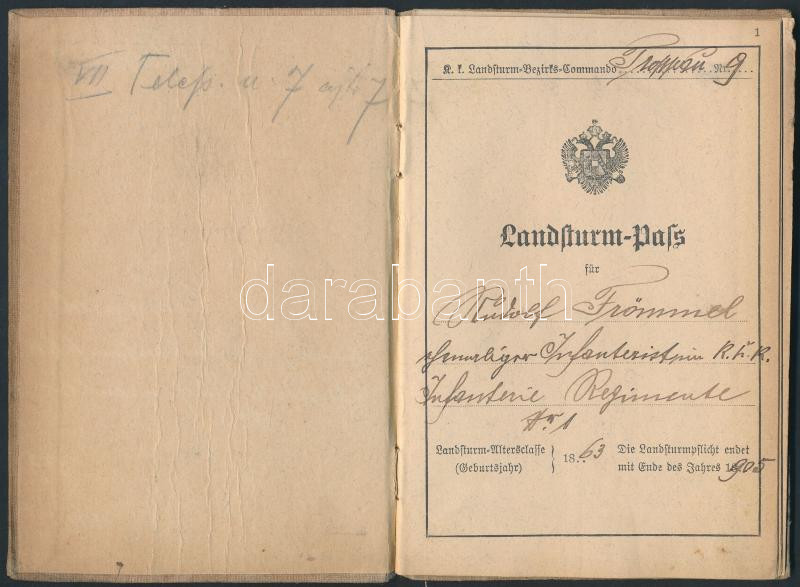 VII Telef. u. 7
7
1
K. k. Landsturm-Bezirks-Commando Troppau Nr. 9
Landsturm-Paſs
für
Rudolf Frömmel
ehemaliger Infanterist im K. u. K.
Infanterie Regimente
Nr 1
Landsturm-Altersclasse
(Geburtsjahr)
1863
Die Landsturmpflicht endet
mit Ende des Jahres 1905
darabanth